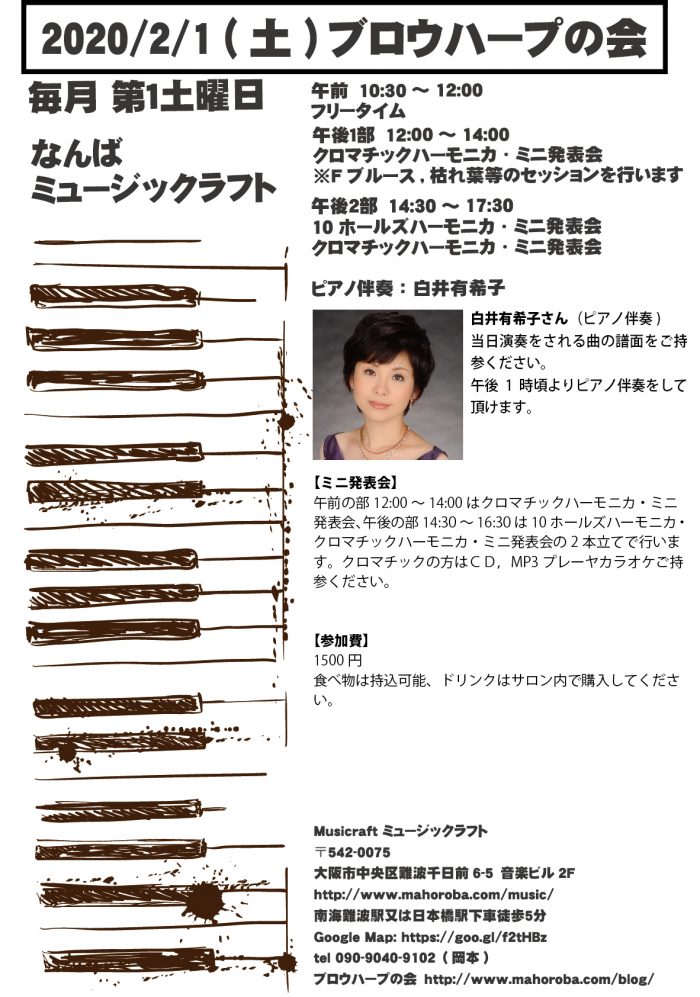 2020/2/1(土)ブロウハープの会
毎月 第1土曜日
なんば
ミュージックラフト
午前 10:30 〜 12:00
フリータイム
午後1部 12:00 〜 14:00
クロマチックハーモニカ・ミニ発表会
※F ブルース , 枯れ葉等のセッションを行います
午後2部 14:30 〜 17:30
10 ホールズハーモニカ・ミニ発表会
クロマチックハーモニカ・ミニ発表会
ピアノ伴奏：白井有希子
白井有希子さん（ピアノ伴奏)
当日演奏をされる曲の譜面をご持
参ください。
午後 1 時頃よりピアノ伴奏をして
頂けます。
【ミニ発表会】
午前の部 12:00 〜 14:00 はクロマチックハーモニカ・ミニ
発表会、午後の部 14:30 〜 16:30 は 10 ホールズハーモニカ・
クロマチックハーモニカ・ミニ発表会の 2 本立てで行いま
す。クロマチックの方はＣＤ，MP3 プレーヤカラオケご持
参ください。
【参加費】
1500 円
食べ物は持込可能、ドリンクはサロン内で購入してくださ
い。
Musicraft ミュージックラフト
〒542-0075
大阪市中央区難波千日前 6-5 音楽ビル 2F
http://www.mahoroba.com/music/
南海難波駅又は日本橋駅下車徒歩5分
Google Map: https://goo.gl/f2tHBz
tel 090-9040-9102 (岡本)
ブロウハープの会 http://www.mahoroba.com/blog/